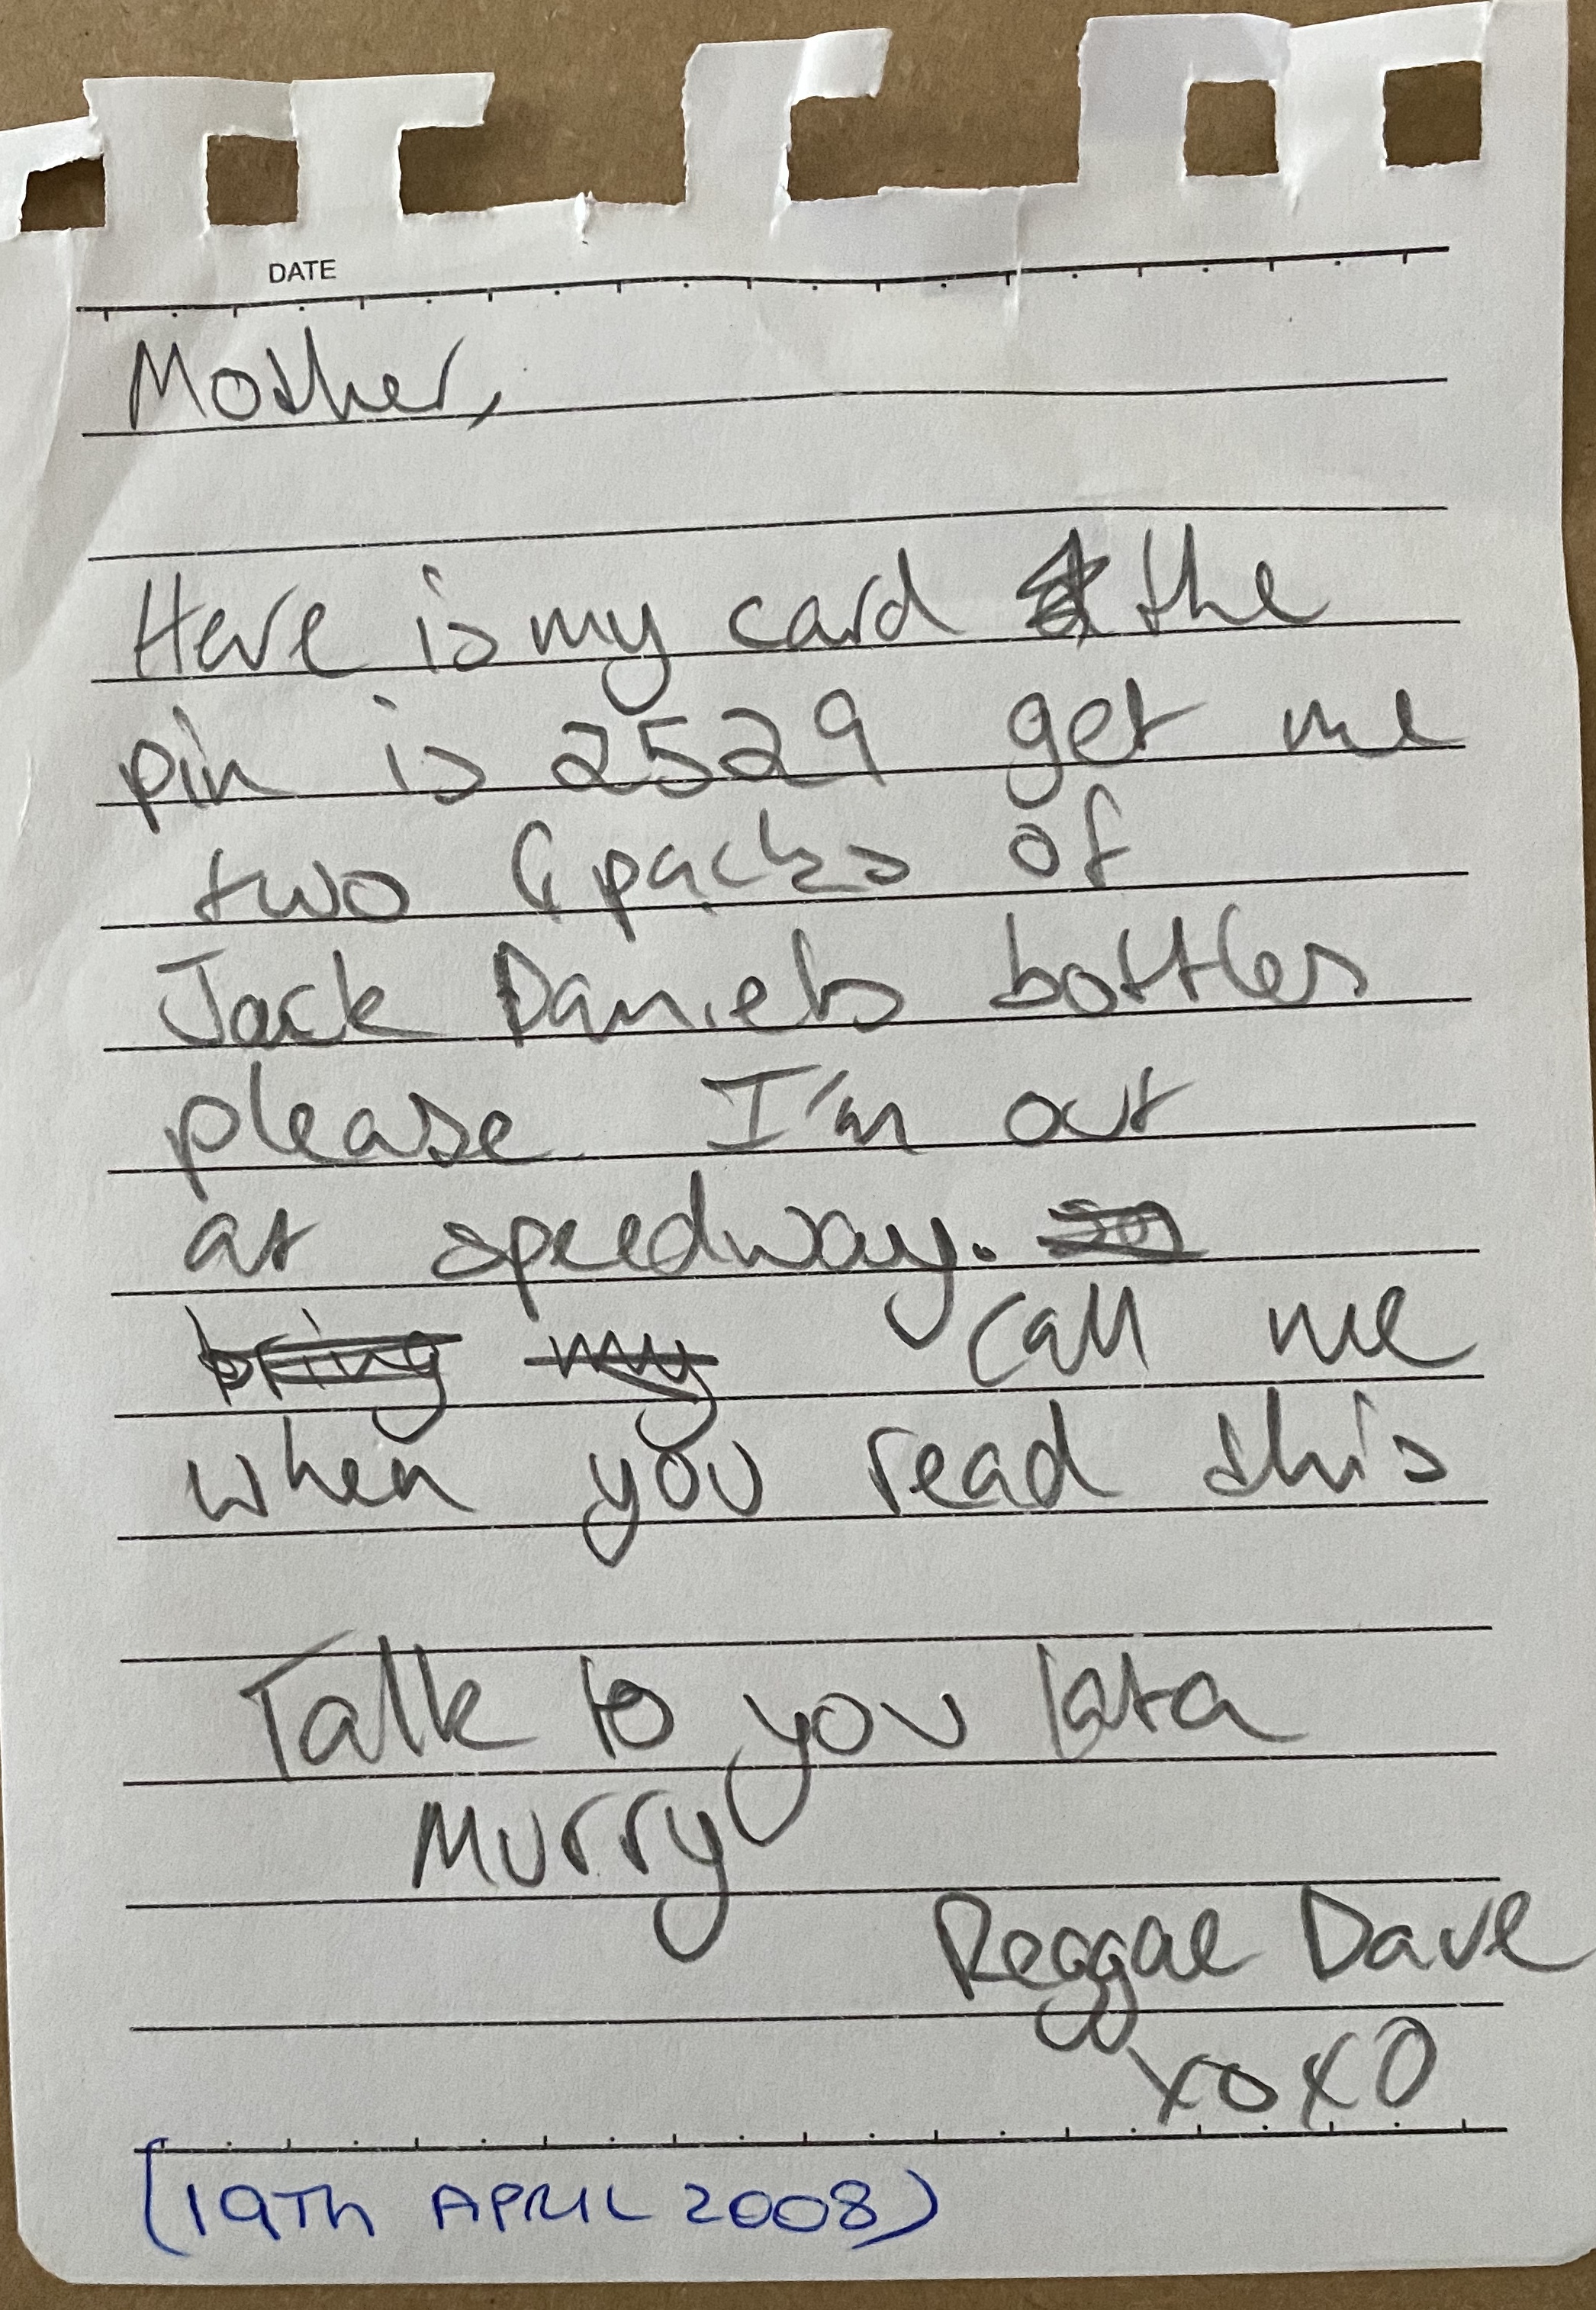 DATE
Mother,
Here is my card the
pin is 2529 get me
two 6 packs of
Jack Daniels bottles
please. I'm out
at speedway.
bring my call me
when you read this
Talk to you lata
Murry
Reggae Dave
xoxo
(19TH APRIL 2008)